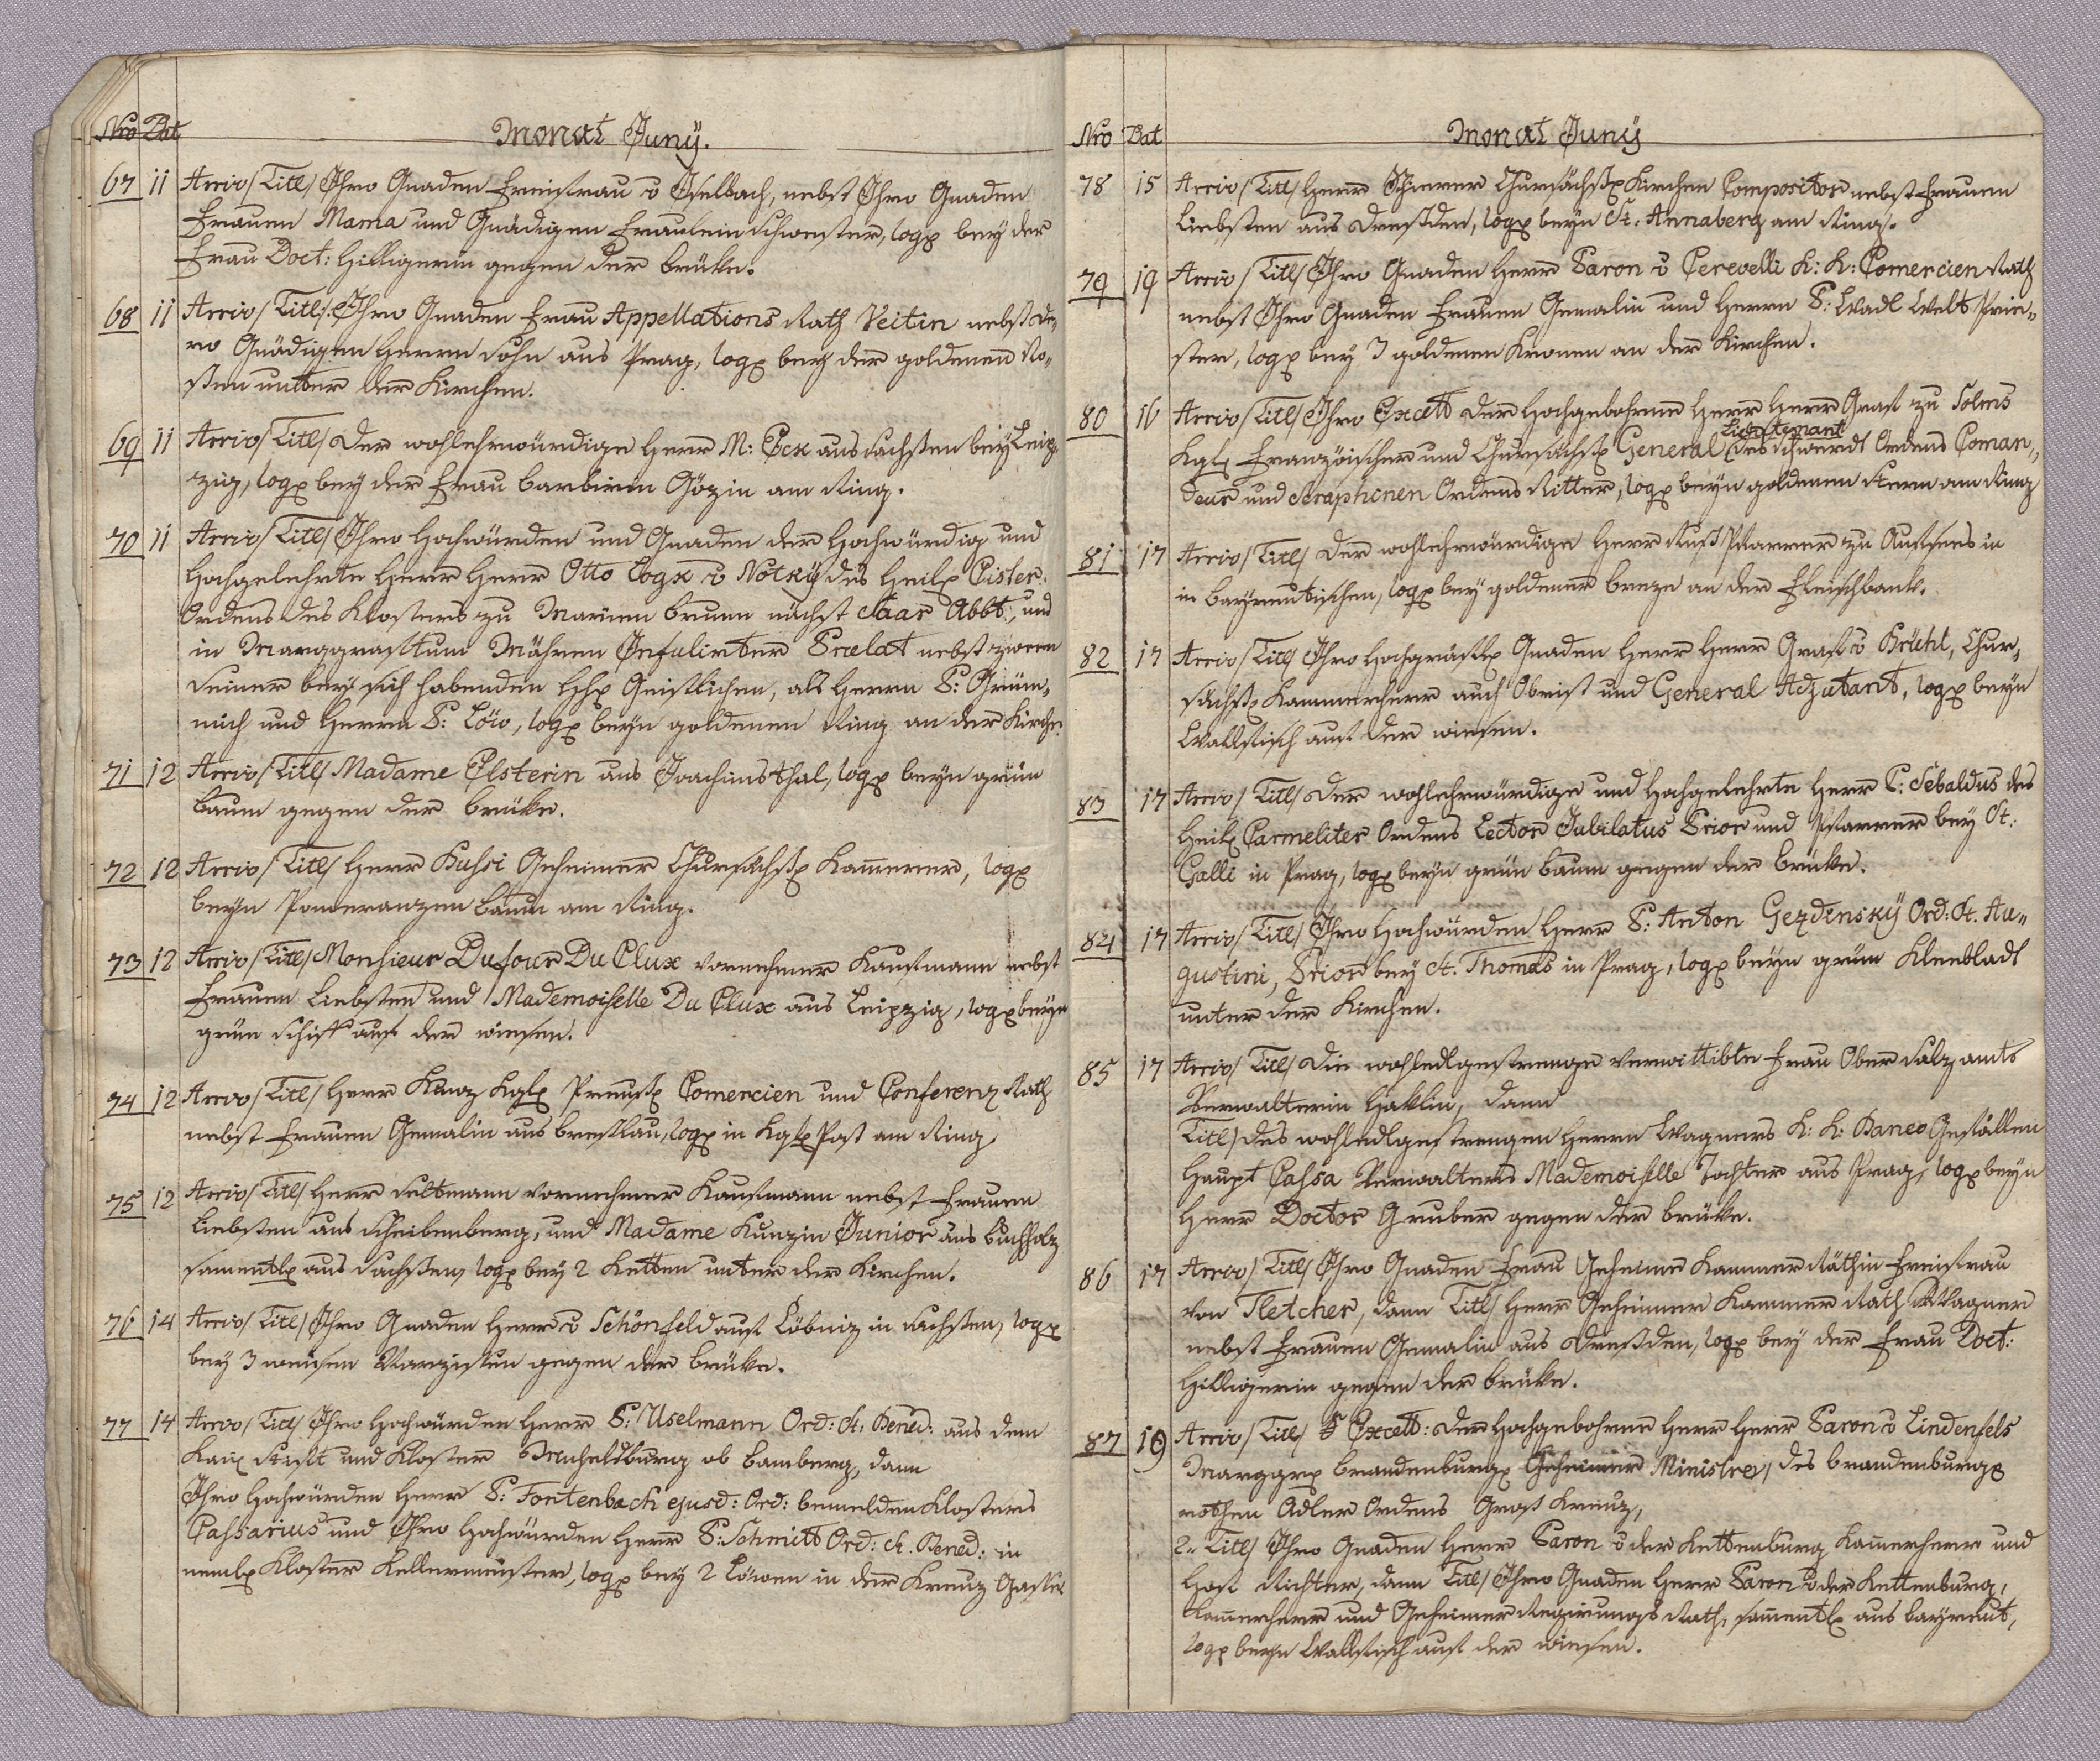 Nro Dat Monat Juny.
67 11 Arrivo /Titl/ Ihro Gnaden Freifrau v Eselbach, nebst Ihro Gnaden
Frauen Mama und Gnädigen Fraulein Schwester, logx bey der
Frau Doct: Hilligerin gegen der brüke.
68 11 Arrivo /Titl/: Ihro Gnaden Frau Appellations Rath Veitin nebst de-
ro Gnädigen Herrn Sohn aus Prag, logx bey der goldenen Ro-
sen untter der Kirchen.
69 11 Arrivo /Titl/ Der wohlehrwürdige Herr M: Eck aus Sachsen bey Leip-
zig, logx bey der Frau barbirin Gözin am Ring.
70 11 Arrivo /Titl/ Ihro Hochwürden und Gnaden der Hochwürdig und
Hochgelehrte Herr Herr Otto Logk v Notky des Heilx Cister:
Ordens des Klosters zu Marien brunn nächst Saar Abbt, und
in Marggrafftum Mähren Infulirter Prælat nebst zween
Seiner bey sich habenden Geistlichen, als Herrn P:
und Herrn P: Löw, logx beyn goldenen Ring an der Kirche.
71 12 Arrivo /Titl/ Madame Elsterin aus Joachimsthal, logx beyn grün
baum gegen der brüke.
72 12 Arrivo /Titl/ Herr Hussi Geheimer Chursächsx Kam̄erer, logx
beyn Pomeranzen baum am Ring.
73 12 Arrivo /Titl/ Monsieur Dufour Du Clux vornehmer Kaufmann nebst
Frauen Liebsten und Mademoiselle Du Clux aus Leipzig, logx beyn
grün schiff auf der wiesen.
74 12 Arrivo /Titl/ Herr Kunz Kglx Preussx Comercien und Conferenz Rath
nebst Frauen Gemalin aus breslau, logx in Kglx Post am Ring.
75 12 Arrivo /Titl/ Herr Seltmann vornehmer Kaufmann nebst Frauen
Liebsten aus Scheibenberg, und Madame Kunzin Junior aus buchholz
samentlx aus Sachsen, logx bey 2 Ketten unter der Kirchen.
76 14 Arrivo /Titl/ Ihro Gnaden Herr v Schönfeld auf Löbniz in Sachsen, logx
bey 3 weisen Narzissen gegen der brüke.
77 14 Arrivo /Titl/ Ihro Hochwürden Herr P: Uselmann Ord: St. Bened: aus dem
Kaix Stifft und Kloster Micheldburg ob bamberg, dann
Ihro Hochwürden Herr P: Fontenbach ejusd: Ord: bemelden Klosters
Cassarius und Ihro Hochwürden Herr P: Schmitt Ord: St. Bened: in
nemlx Kloster Kellermeister, logx bey 2 Löwen in der Kreuz Gasse
Nro Dat Monat Juny
78 15 Arrivo /Titl/ Herr Schierer Chursächsx Kirchen Compositor nebst Frauen
Liebsten aus Dresden, logx beyn St: Annaberg am Ring.
79 19 Arrivo /Titl/ Ihro Gnaden Herr Baron v Cerevelli K: K: Comercien Rath
nebst Ihro Gnaden Frauen Gemalin und Herrn P: Wadl Welt Prie-
ster, logx bey 3 goldenen Kronen an der Kirchen.
80 16 Arrivo /Titl/ Ihro Excell der Hochgebohrne Herr Herr Graf zu Solms
Kglx Französischer und Chursächsx General Lieutenant des Schwerdt Ordens Coman-
deur und Seraphinen Ordens Ritter, logx beyn goldenen Stern am Ring
81 17 Arrivo /Titl/ Der wohlehrwürdige Herr Pfarrer zu Aufsees in
in bayreutischen, logx bey goldener breze an der Fleischbank.
82 17 Arrivo /Titl/ Ihro Hochgräflx Gnaden Herr Herr Graf v Brühl, Chur-
sächsx Kammerherr auch Obrist und General Adjutant, logx beyn
Wallfisch auf der wiesen.
83 17 Arrivo /Titl/ Der wohlehrwürdige und Hochgelehrte Herr P: Sebaldus des
Heilx Carmeliter Ordens Lector Jubilatus Prior und Pfarrer bey St:
Galli in Prag, logx beyn grün baum gegen der brüke.
84 17 Arrivo /Titl/ Ihro Hochwürden Herr P: Anton Gezdinsky Ord: St. Au-
gustini, Prior bey St. Thomas in Prag, logx beyn grün Kleebladt
unter der Kirchen.
85 17 Arrivo /Titl/ Die wohledlgestrenge verwittibte Frau Ober Salz amts
Verwalterin Haklin, dann
Titl/ des wohledlgestrengen Herrn Wagners K: K: Banco Gefällen
Haupt Cassa Verwalters Mademoiselle Tochter aus Prag, logx beyn
Herr Doctor Gruber gegen der brüke.
86 17 Arrivo /Titl/ Ihro Gnaden Frau Geheime Kammer Räthin Freifrau
von Fletcher, dann Titl/ Herr Geheimer Kammer Rath Wagner
nebst Frauen Gemalin aus Dresden, logx bey der Frau Doct:
Hilligerin gegen der brüke.
87 19 Arrivo /Titl/ S Excell: der Hochgebohrne Herr Herr Baron v Lindenfels
Marggrx brandenburgx Geheimer Ministre, des brandenburgx
rothen Adler Ordens Gros Kreuz,
2.. Titl/ Ihro Gnaden Herr Baron v der Kettenburg Kam̄erherr und
Hof Richter, dann Titl/ Ihro Gnaden Herr Baron v der Kettenburg,
Kam̄erherr und Geheimer Regierungs Rath, sam̄entlx aus bayreut,
logx beyn Wallfisch auf der wiesen.